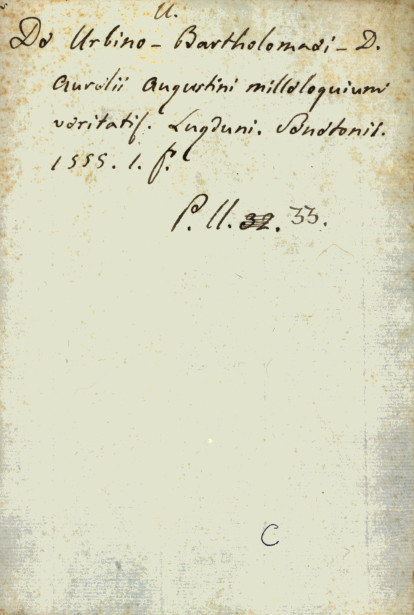 U.
De Urbino - Bartholomaei - D.
Aurelii Augustini milleloquium
veritatis. Lugduni. Senetonis.
1555. 1. f.
P. U. 32. 33.
C